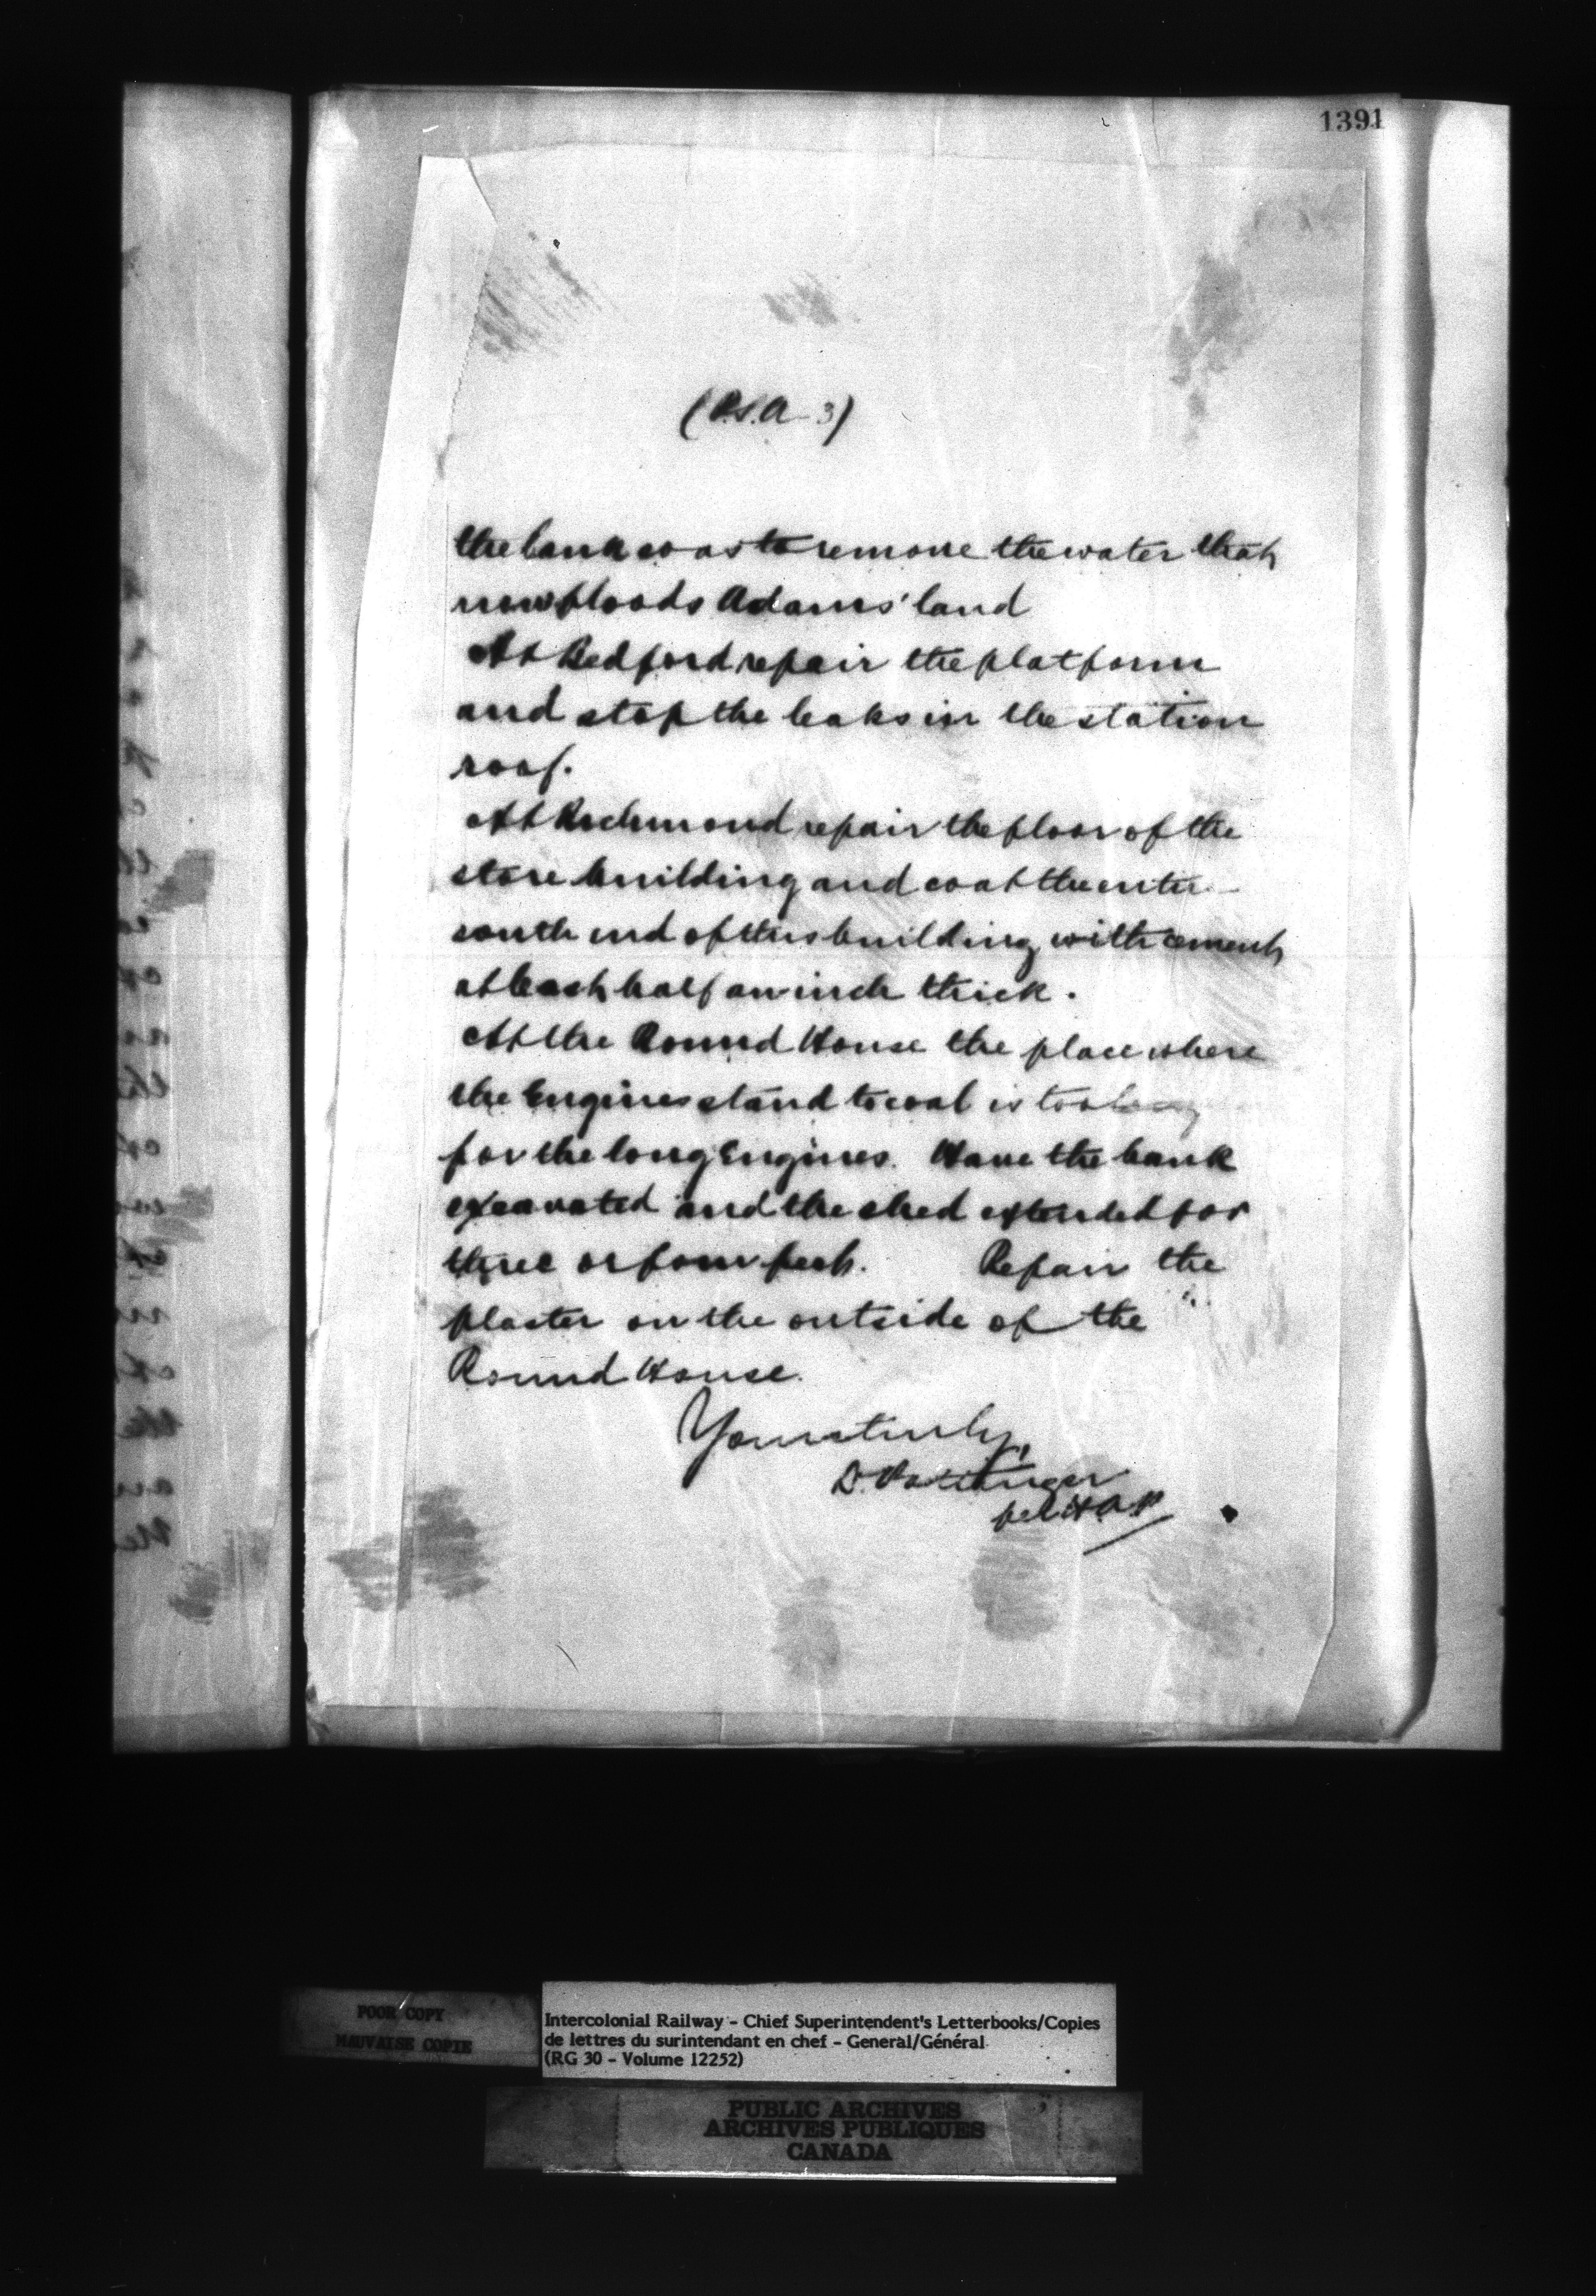 1391
(P.S.A - 3)
the bank so as to remove the water that
now floods Adams' land
At Bedford repair the platform
and stop the leaks in the station
roof.
At Richmond repair the floor of the
store building and coat the entire
south end of this building with cement
at least half an inch thick.
At the Round House the place where
the Engines stand to coal is too
for the long Engines. Have the bank
excavated and the shed extended for
three or four feet. Repair the
plaster on the outside of the
Round House.
Yours truly,
D. Pottinger
per
POOR COPY
MAUVAISE COPIE
Intercolonial Railway - Chief Superintendent's Letterbooks/Copies
de lettres du surintendant en chef - General/Général
(RG 30 - Volume 12252)
PUBLIC ARCHIVES
ARCHIVES PUBLIQUES
CANADA